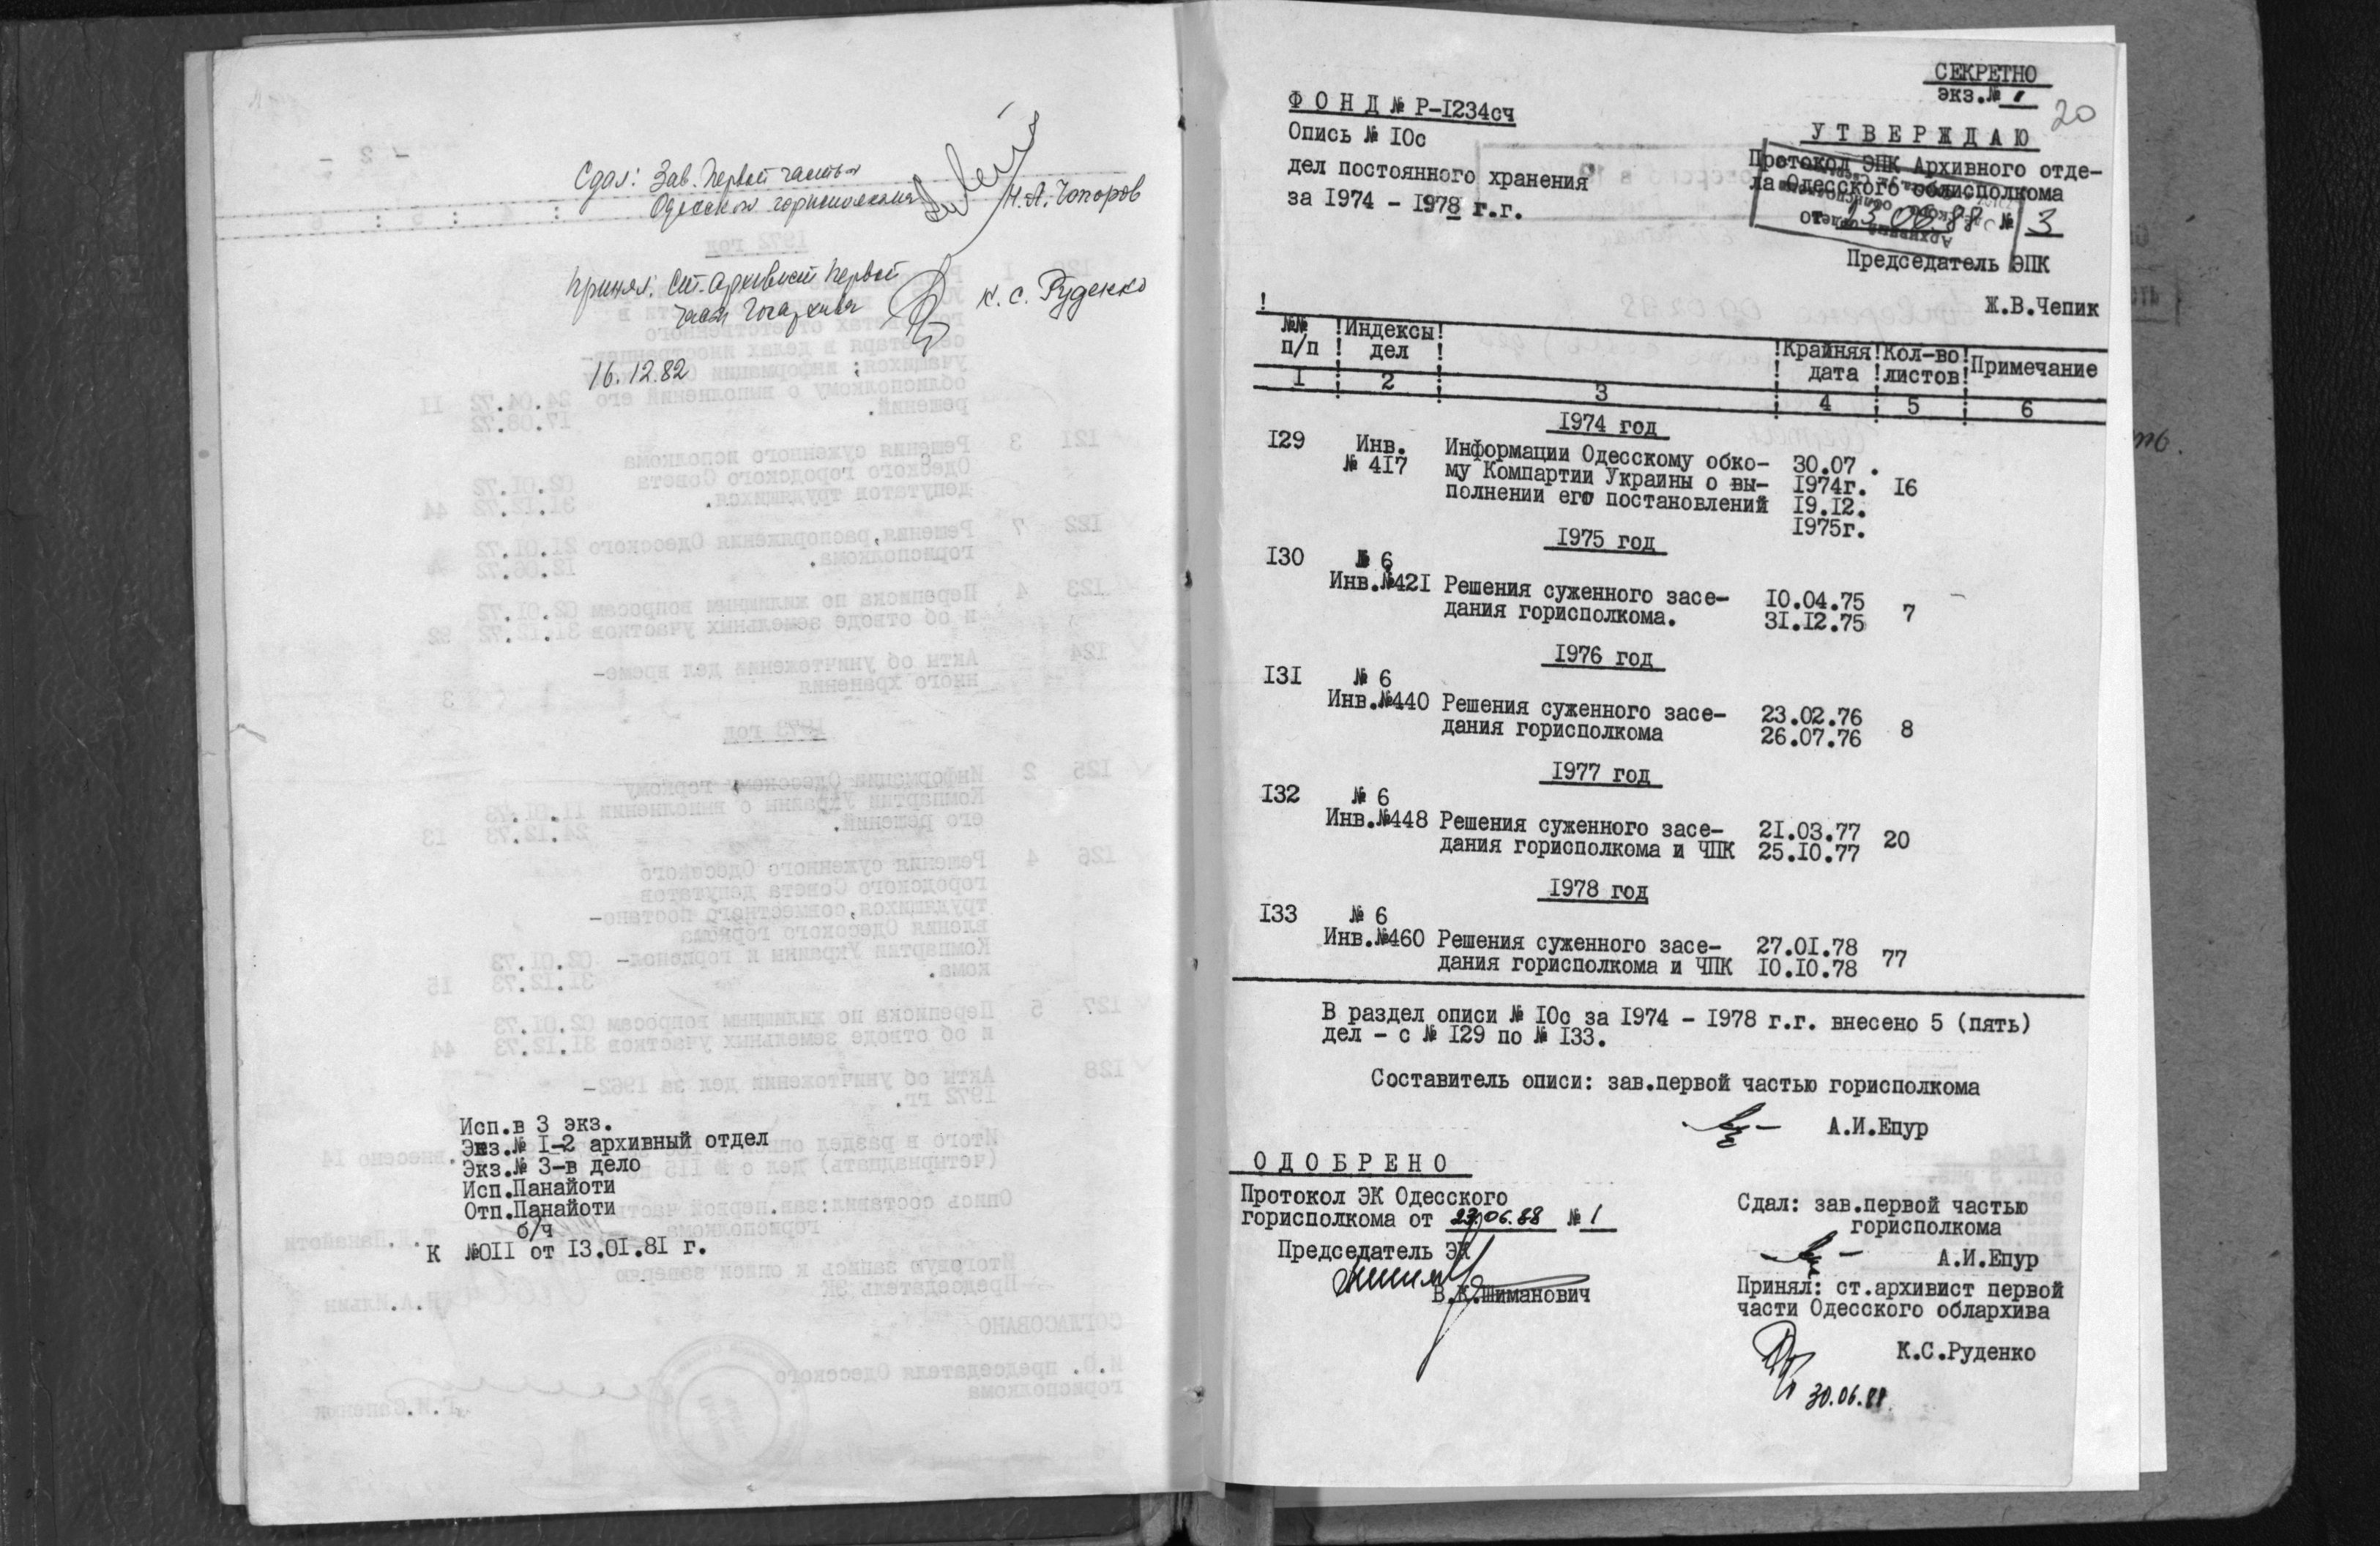 Сдал: Зав. Первой частью
Одесского горисполкома
Н.А. Топоров
Принял: Ст. архивист первой
части Госархива
К. С. Руденко
16.12.82
Исп.в 3 экз.
Экз.№ I-2 архивный отдел
Экз.№ 3-в дело
Исп.Панайоти
Отп.Панайоти
б/ч
К №ОII от I3.OI.8I г.
СЕКРЕТНО
экз.№ 1
20
ФОНД № Р-I234сч
Опись № IOс
дел постоянного хранения
за I974 - I978 г.г.
УТВЕРЖДАЮ
Протокол ЭПК Архивного отде-
ла Одесского облисполкома
от 23 06 88 № 3
Председатель ЭПК
Ж.В.Чепик
№№ п/п ! Индексы дел ! ! Крайняя дата ! Кол-во листов ! Примечание
I ! 2 ! 3 ! 4 ! 5 ! 6
I974 год
I29 Инв. Информации Одесскому обко- 30.07 .
№ 4I7 му Компартии Украины о вы- I974г. I6
полнении его постановлений I9.I2.
I975г.
I975 год
I30 № 6
Инв.№42I Решения суженного засе- IO.04.75
дания горисполкома. 3I.I2.75 7
I976 год
I3I № 6
Инв.№440 Решения суженного засе- 23.02.76
дания горисполкома 26.07.76 8
I977 год
I32 № 6
Инв.№448 Решения суженного засе- 2I.03.77
дания горисполкома и ЧПК 25.IO.77 20
I978 год
I33 № 6
Инв.№460 Решения суженного засе- 27.OI.78
дания горисполкома и ЧПК IO.IO.78 77
В раздел описи № IOс за I974 - I978 г.г. внесено 5 (пять)
дел - с № I29 по № I33.
Составитель описи: зав.первой частью горисполкома
А.И.Епур
ОДОБРЕНО
Протокол ЭК Одесского
горисполкома от 23.06.88 № 1
Председатель ЭК
В.К.Шиманович
Сдал: зав.первой частью
горисполкома
А.И.Епур
Принял: ст.архивист первой
части Одесского облархива
К.С.Руденко
30.06.88